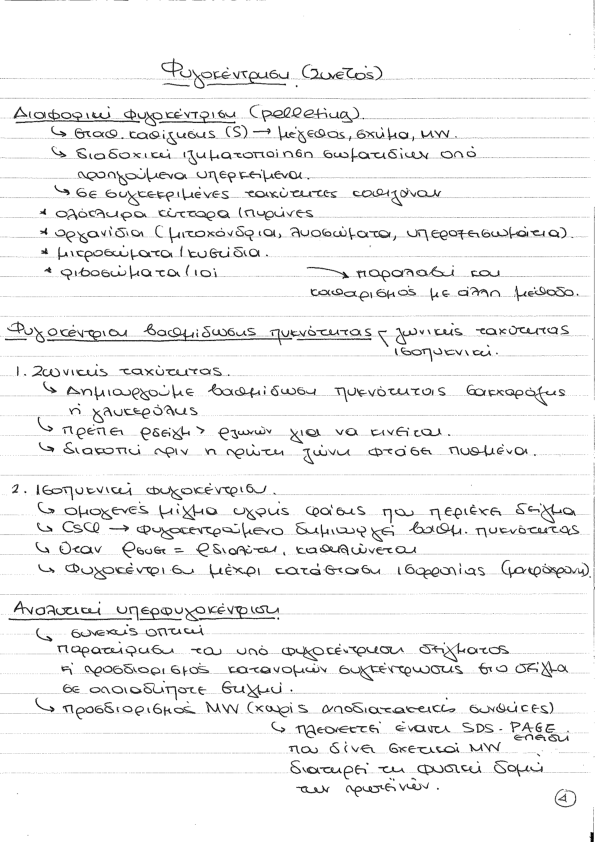 Φυγοκέντρηση (Συνετός)
Διαφορική φυγοκέντριση (pelleting).
↳ σταθ. καθίζησης (S) → μέγεθος, σχήμα, MW.
↳ διαδοχική ιζηματοποίηση σωματιδίων από
προηγούμενα υπερκείμενα.
↳ σε συγκεκριμένες ταχύτητες καθιζάνουν
* ολόκληρα κύτταρα / πυρήνες
* οργανίδια (μιτοχόνδρια, λυσοσώματα, υπεροξεισωμάτια).
* μικροσώματα / κυστίδια.
* ριβοσώματα / ιοί → παραλαβή και
καθαρισμός με άλλη μέθοδο.
Φυγοκέντριση βαθμίδωσης πυκνότητας - ζωνικής ταχύτητας
ισοπυκνική.
1. Ζωνικής ταχύτητας.
↳ Δημιουργούμε βαθμίδωση πυκνότητας σακχαρόζης
ή γλυκερόλης
↳ πρέπει ρδείγμ > ρζωνών για να κινείται.
↳ διακοπή πριν η πρώτη ζώνη φτάσει πυθμένα.
2. Ισοπυκνική φυγοκέντριση.
↳ ομογενές μίγμα υγρής φάσης που περιέχει δείγμα
↳ CsCl → φυγοκεντρούμενο δημιουργεί βαθμ. πυκνότητας
↳ όταν ρουσ = ρδιαλύτη, καθηλώνεται
↳ Φυγοκέντριση μέχρι κατάσταση ισορροπίας (μακρόχρονη).
Αναλυτική υπερφυγοκέντριση
↳ συνεχής οπτική
παρατήρηση του υπό φυγοκέντρηση δείγματος
ή προσδιορισμός κατανομών συγκέντρωσης στο δείγμα
σε οποιαδήποτε στιγμή.
↳ προσδιορισμός MW (χωρίς αποδιατακτικές συνθήκες)
↳ πλεονεκτεί έναντι SDS-PAGE
που δίνει σχετική MW επειδή
διατηρεί τη φυσική δομή
των πρωτεϊνών.
1